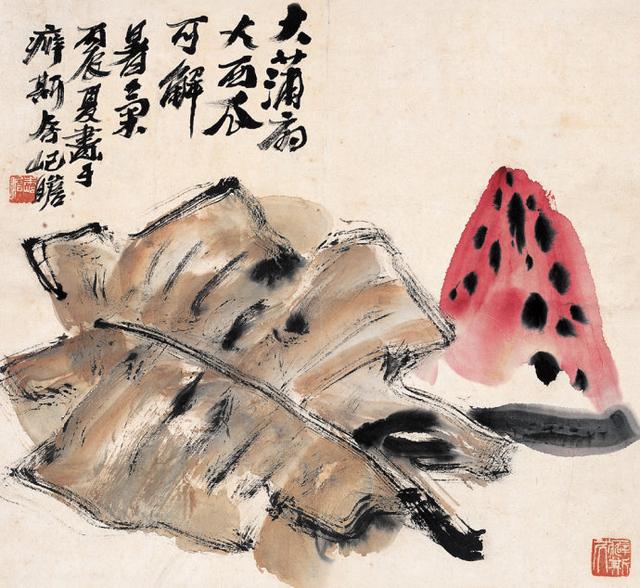 大蒲扇
大西瓜
可解
暑氣
丙辰夏畫于
癖斯居屺瞻